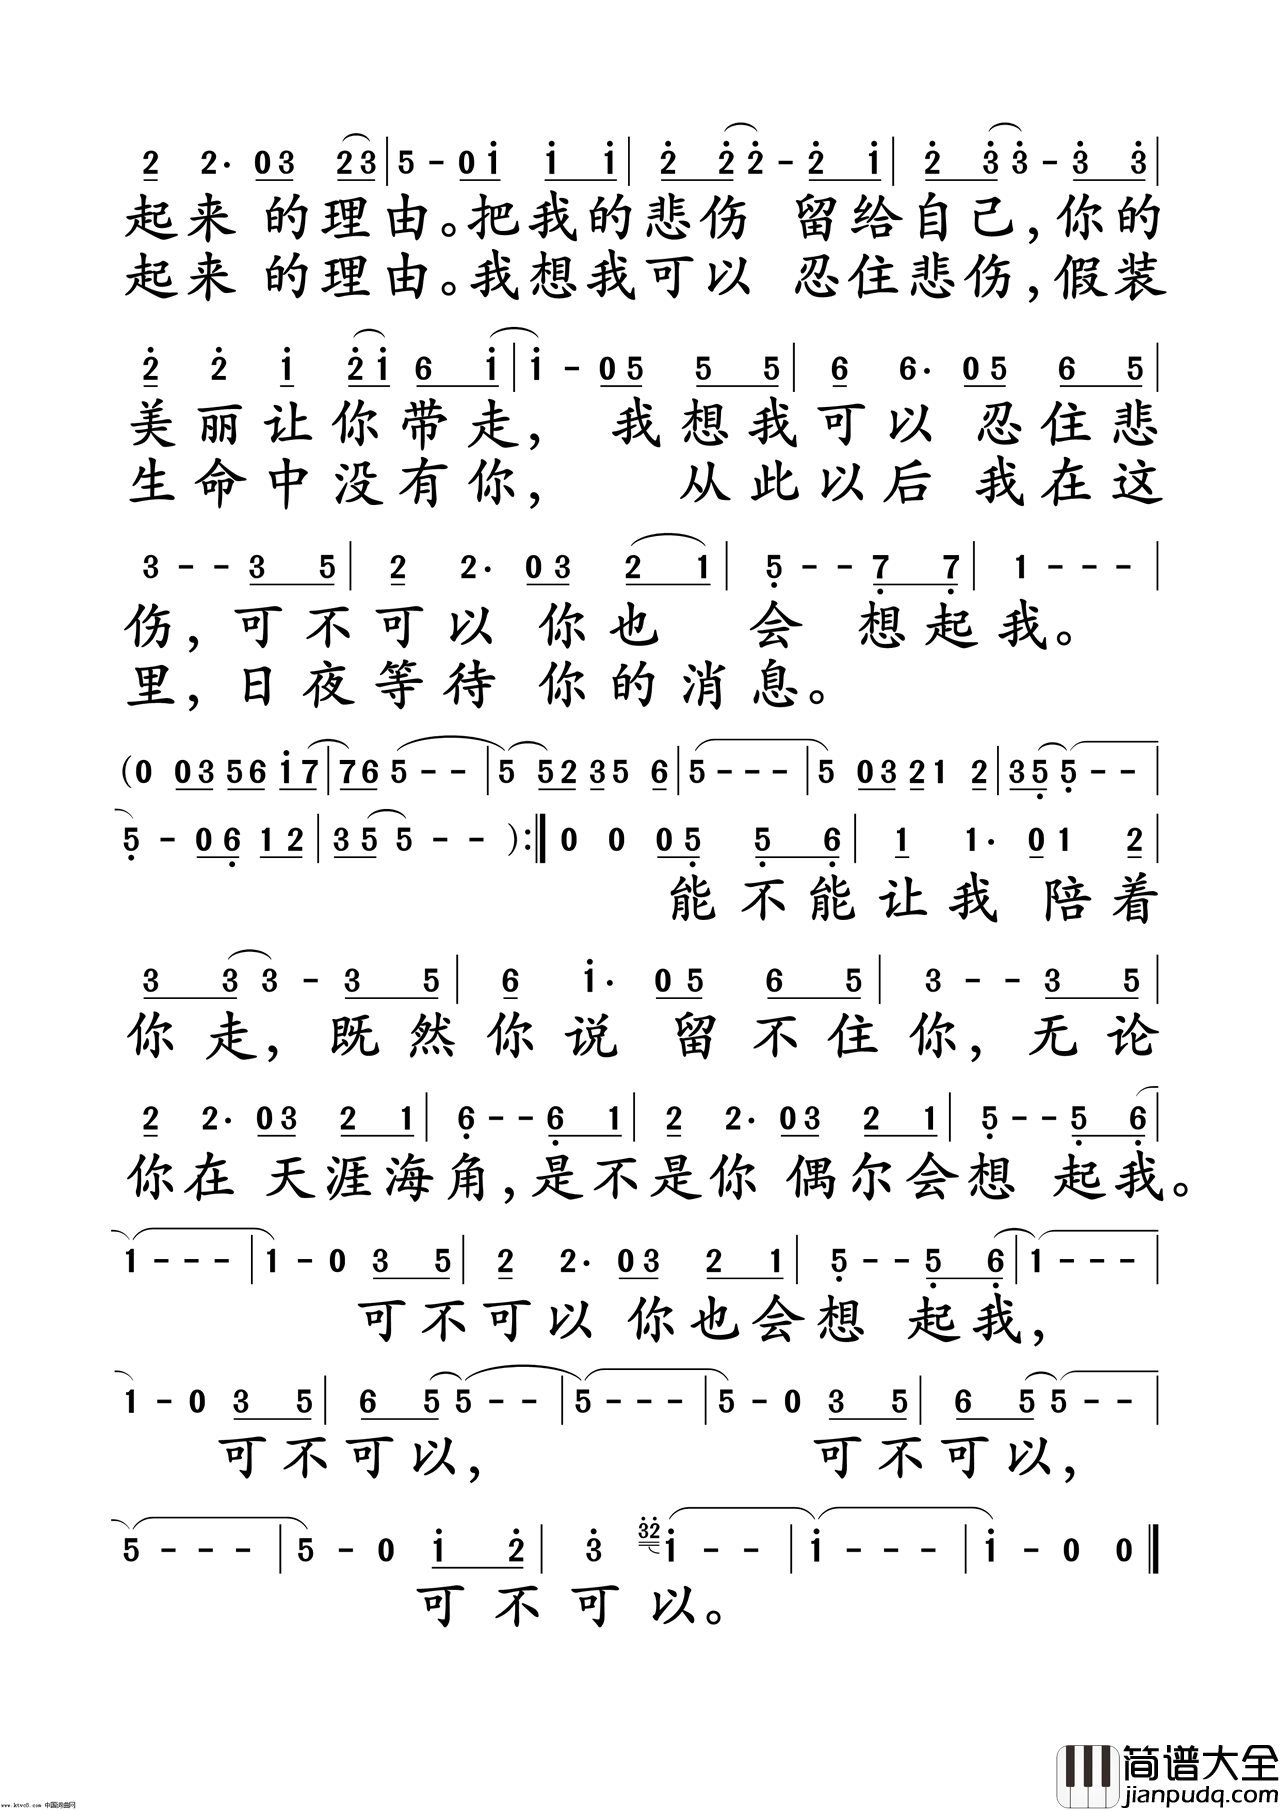 2 2· 03 23 | 5 - 0i i i | 2 22 - 2 i | 2 33 - 3 3 |
起来 的理由。把我的悲伤 留给自己,你的
起来 的理由。我想我可以 忍住悲伤,假装
2 2 i 2i 6 i | i - 05 5 5 | 6 6· 05 6 5 |
美丽让你带走, 我想我可以 忍住悲
生命中没有你, 从此以后 我在这
3 - - 3 5 | 2 2· 03 2 1 | 5 - - 7 7 | 1 - - - |
伤,可不可以 你也 会 想起我。
里,日夜等待 你的消息。
(0 03 56 i7 | 76 5 - - | 5 52 35 6 | 5 - - - | 5 03 21 2 | 35 5 - - |
5 - 06 12 | 35 5 - - ):‖ 0 0 05 5 6 | 1 1· 01 2 |
能不能让我 陪着
3 3 3 - 3 5 | 6 i· 05 6 5 | 3 - - 3 5 |
你走,既然你说 留不住你,无论
2 2· 03 2 1 | 6 - - 6 1 | 2 2· 03 2 1 | 5 - - 5 6 |
你在 天涯海角,是不是你 偶尔会想 起我。
1 - - - | 1 - 0 3 5 | 2 2· 03 2 1 | 5 - - 5 6 | 1 - - - |
可不可以 你也会想 起我,
1 - 0 3 5 | 6 5 5 - - | 5 - - - | 5 - 0 3 5 | 6 5 5 - - |
可不可以, 可不可以,
5 - - - | 5 - 0 i 2 | 3 32 i - - | i - - - | i - 0 0 ‖
可不可以。
简谱大全
jianpudq.com
www.ktvc8.com 中国词曲网